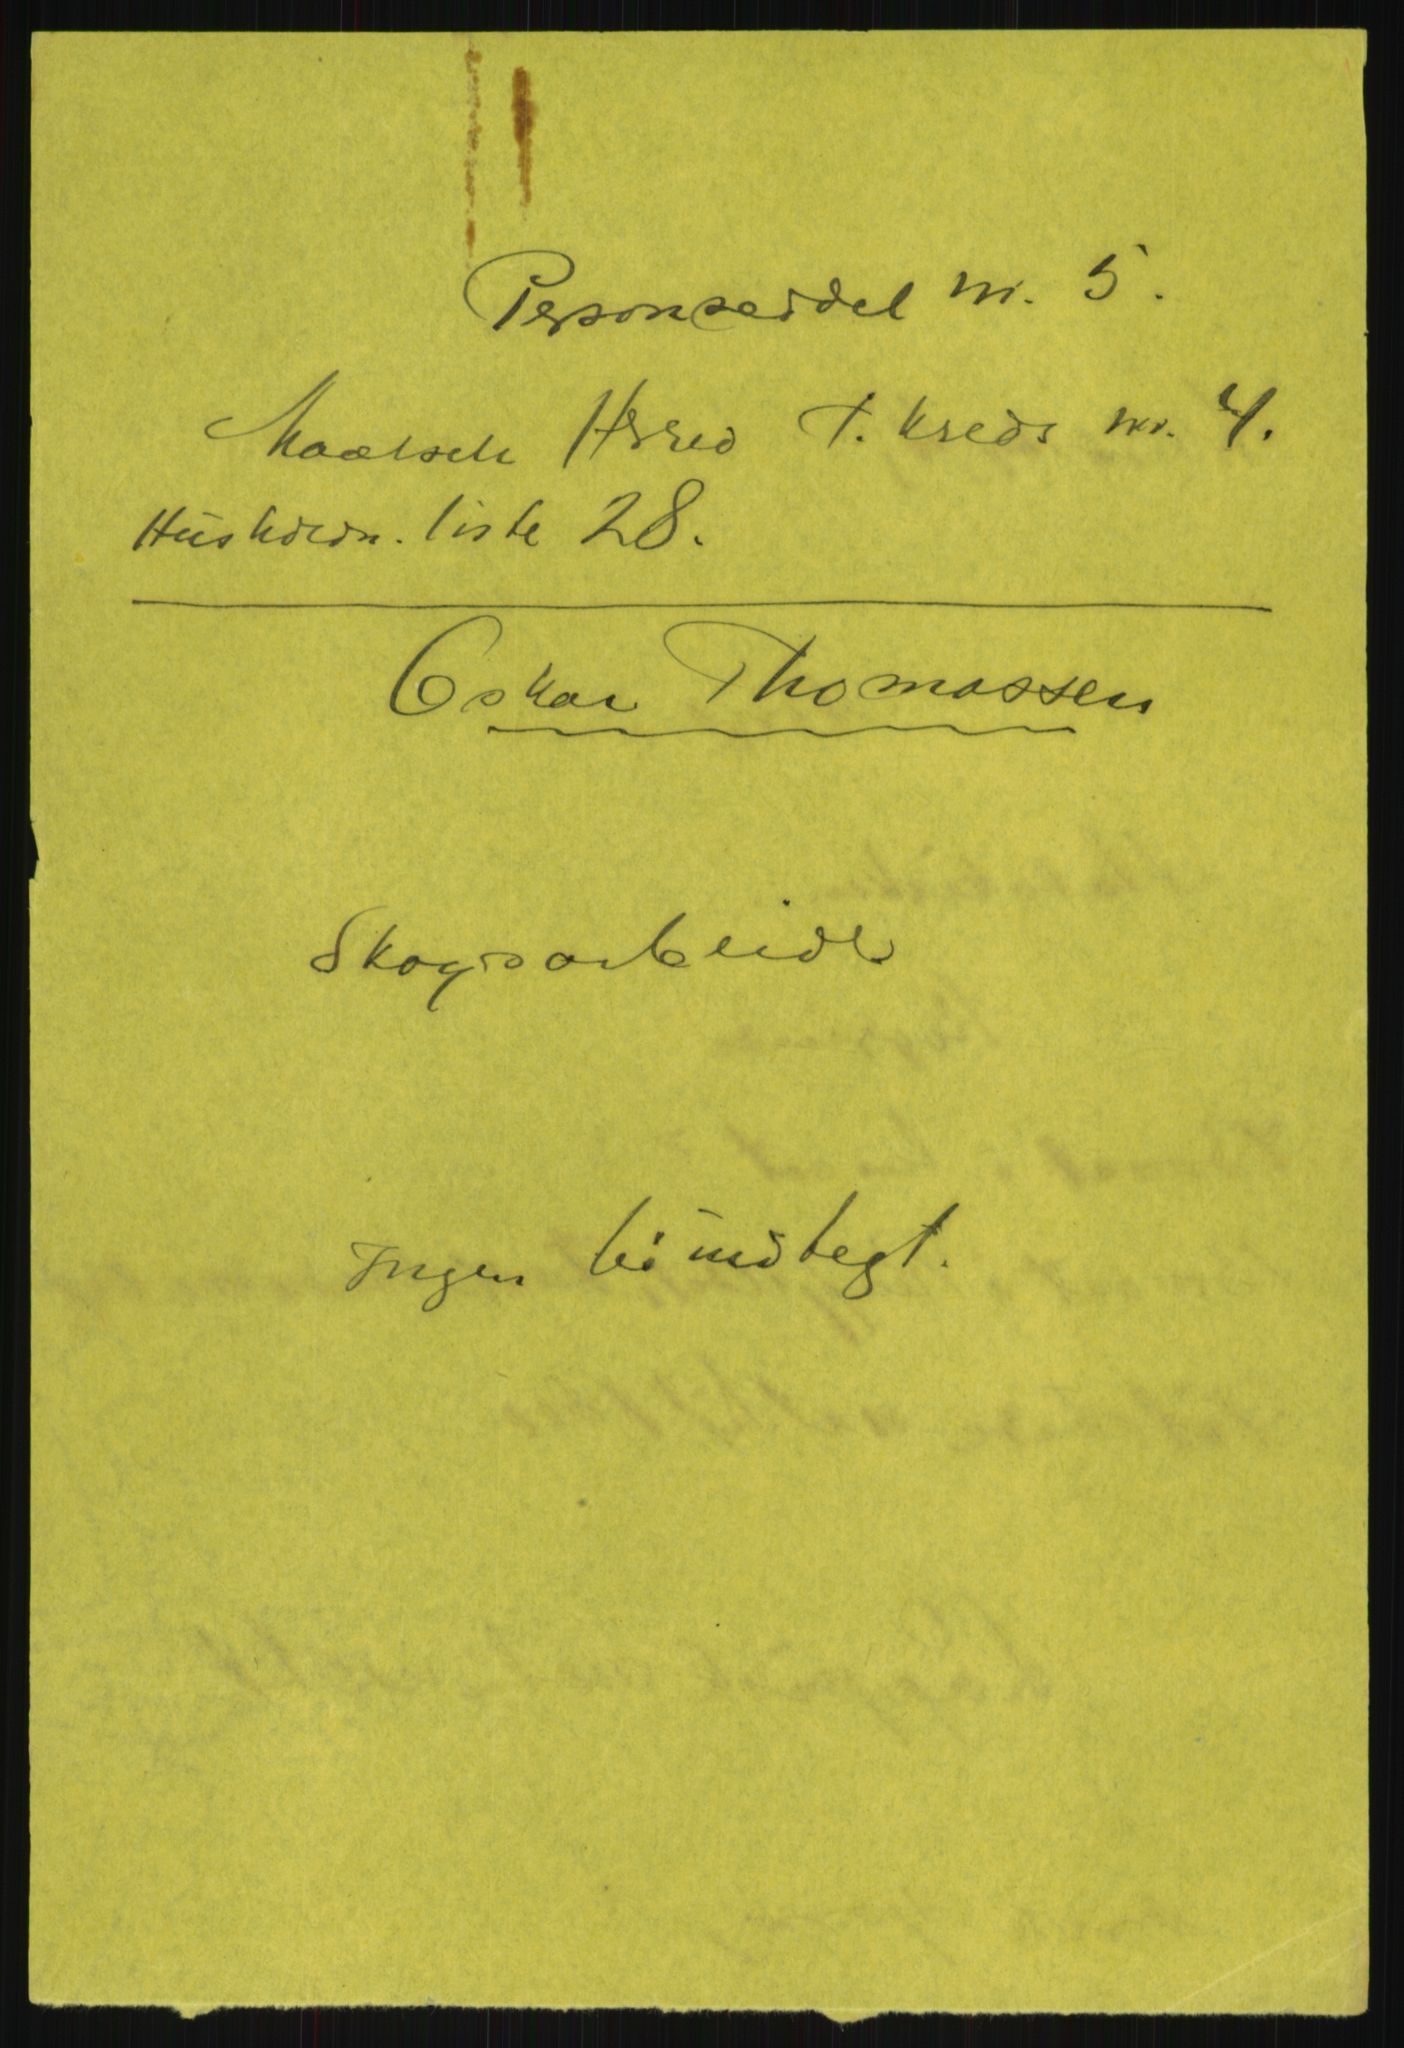 Personseddel nr. 5.
Maalselv Herred T. kreds nr. 4.
Husholdn. liste 28.
Oskar Thomassen
Skogsarbeide
Ingen biindtegt.